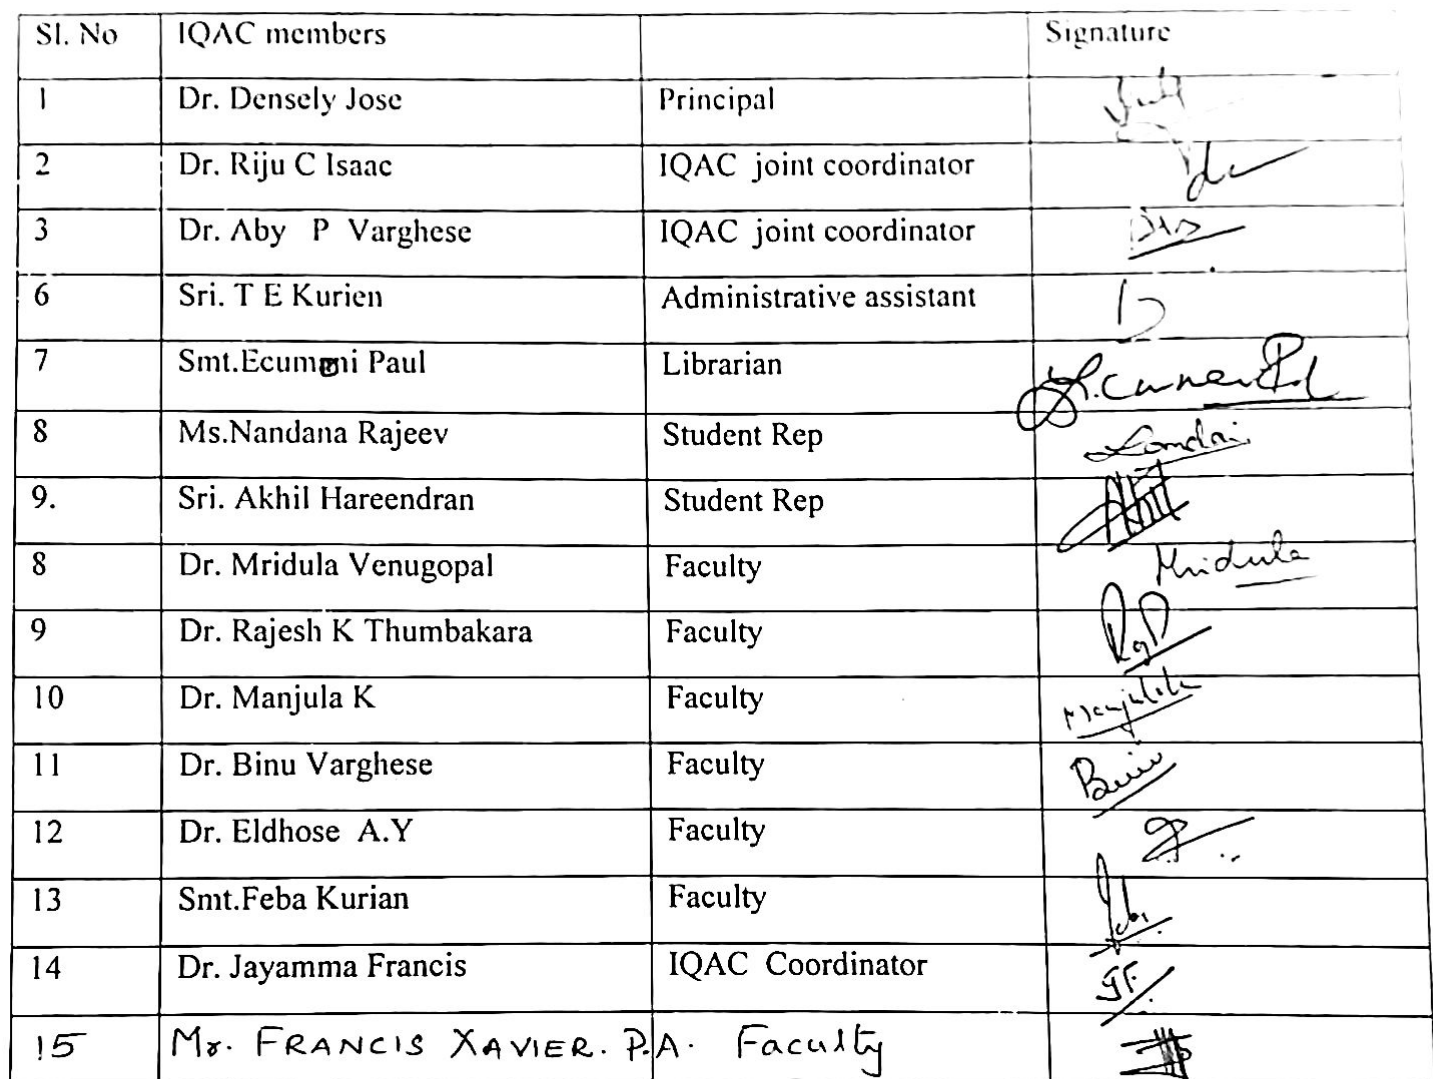 Sl. No IQAC members Signature
1 Dr. Densely Jose Principal
2 Dr. Riju C Isaac IQAC joint coordinator
3 Dr. Aby P Varghese IQAC joint coordinator
6 Sri. T E Kurien Administrative assistant
7 Smt. Paul Librarian
8 Ms.Nandana Rajeev Student Rep
9. Sri. Akhil Hareendran Student Rep
8 Dr. Mridula Venugopal Faculty Mridula
9 Dr. Rajesh K Thumbakara Faculty
10 Dr. Manjula K Faculty
11 Dr. Binu Varghese Faculty Binu
12 Dr. Eldhose A.Y Faculty
13 Smt.Feba Kurian Faculty
14 Dr. Jayamma Francis IQAC Coordinator
15 Mr. FRANCIS XAVIER. P.A. Faculty